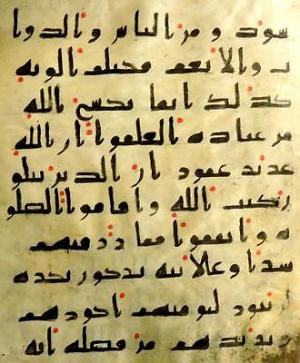 سود و من الناس و الدوا
ب و الانعم مختلف الونه
كذلك انما يخشى الله
من عباده العلموا ان الله
عزيز غفور ان الذين يتلو
ن كتب الله و اقاموا الصلو
ة و انفقوا مما رزقنهم
سرا و علانية يرجون تجرة
لن تبور ليوفيهم اجورهم
و يزيدهم من فضله انه